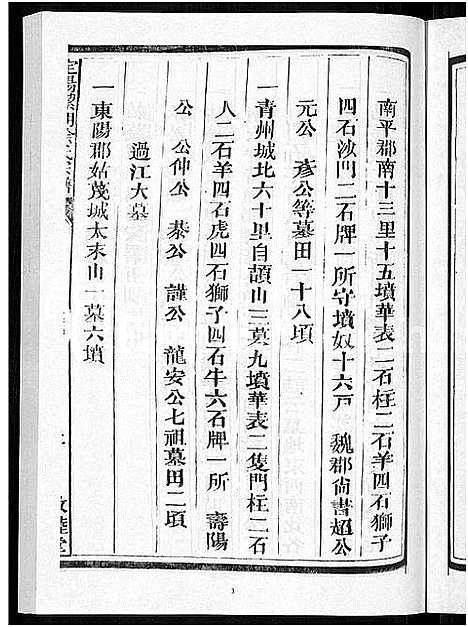 南平郡南十三里十五墳華表二石柱二石羊四石獅子
四石沙門二石牌一所守墳奴十六戸　魏郡尙書超公
元公　彥公等墓田一十八頃
一青州城北六十里自頡山三墓九墳華表二隻門柱二石
人二石羊四石虎四石獅子四石牛六石牌一所　壽陽
公　公仲公　綦公　謹公　龍安公七祖墓田二頃
過江大墓
一東陽郡姑蔑城太末山一墓六墳